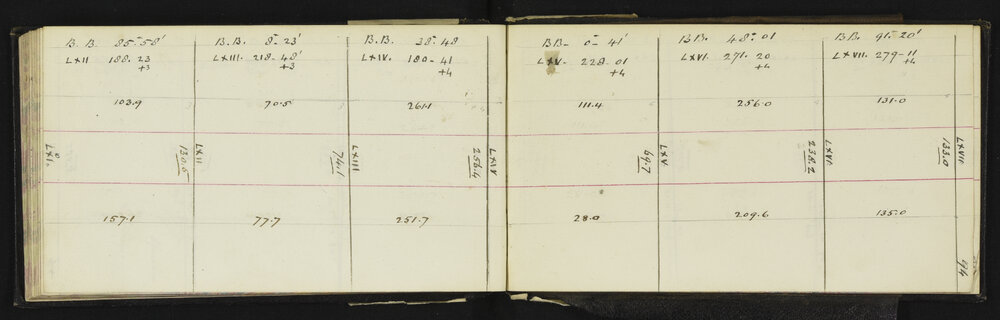 B.B. 85-58'
LXII 188.23
+3
103.9
157.1
LXI.
0
LXII
130.5
B.B. 8-23'
LXIII. 218-48'
+3
70.5
77.7
LXIII
74.1
B.B. 38-48
LXIV. 180-41
+4
261.1
251.7
LXIV
256.4
BB- 0-41'
LXV. 228-01
+4
111.4
28.0
LXV
69.7
BB. 48-01
LXVI. 271.20
+4
256.0
209.6
LXVI
238.2
BB. 91-20'
LXVII. 279-11
+4
131.0
135.0
LXVII
133.0
94